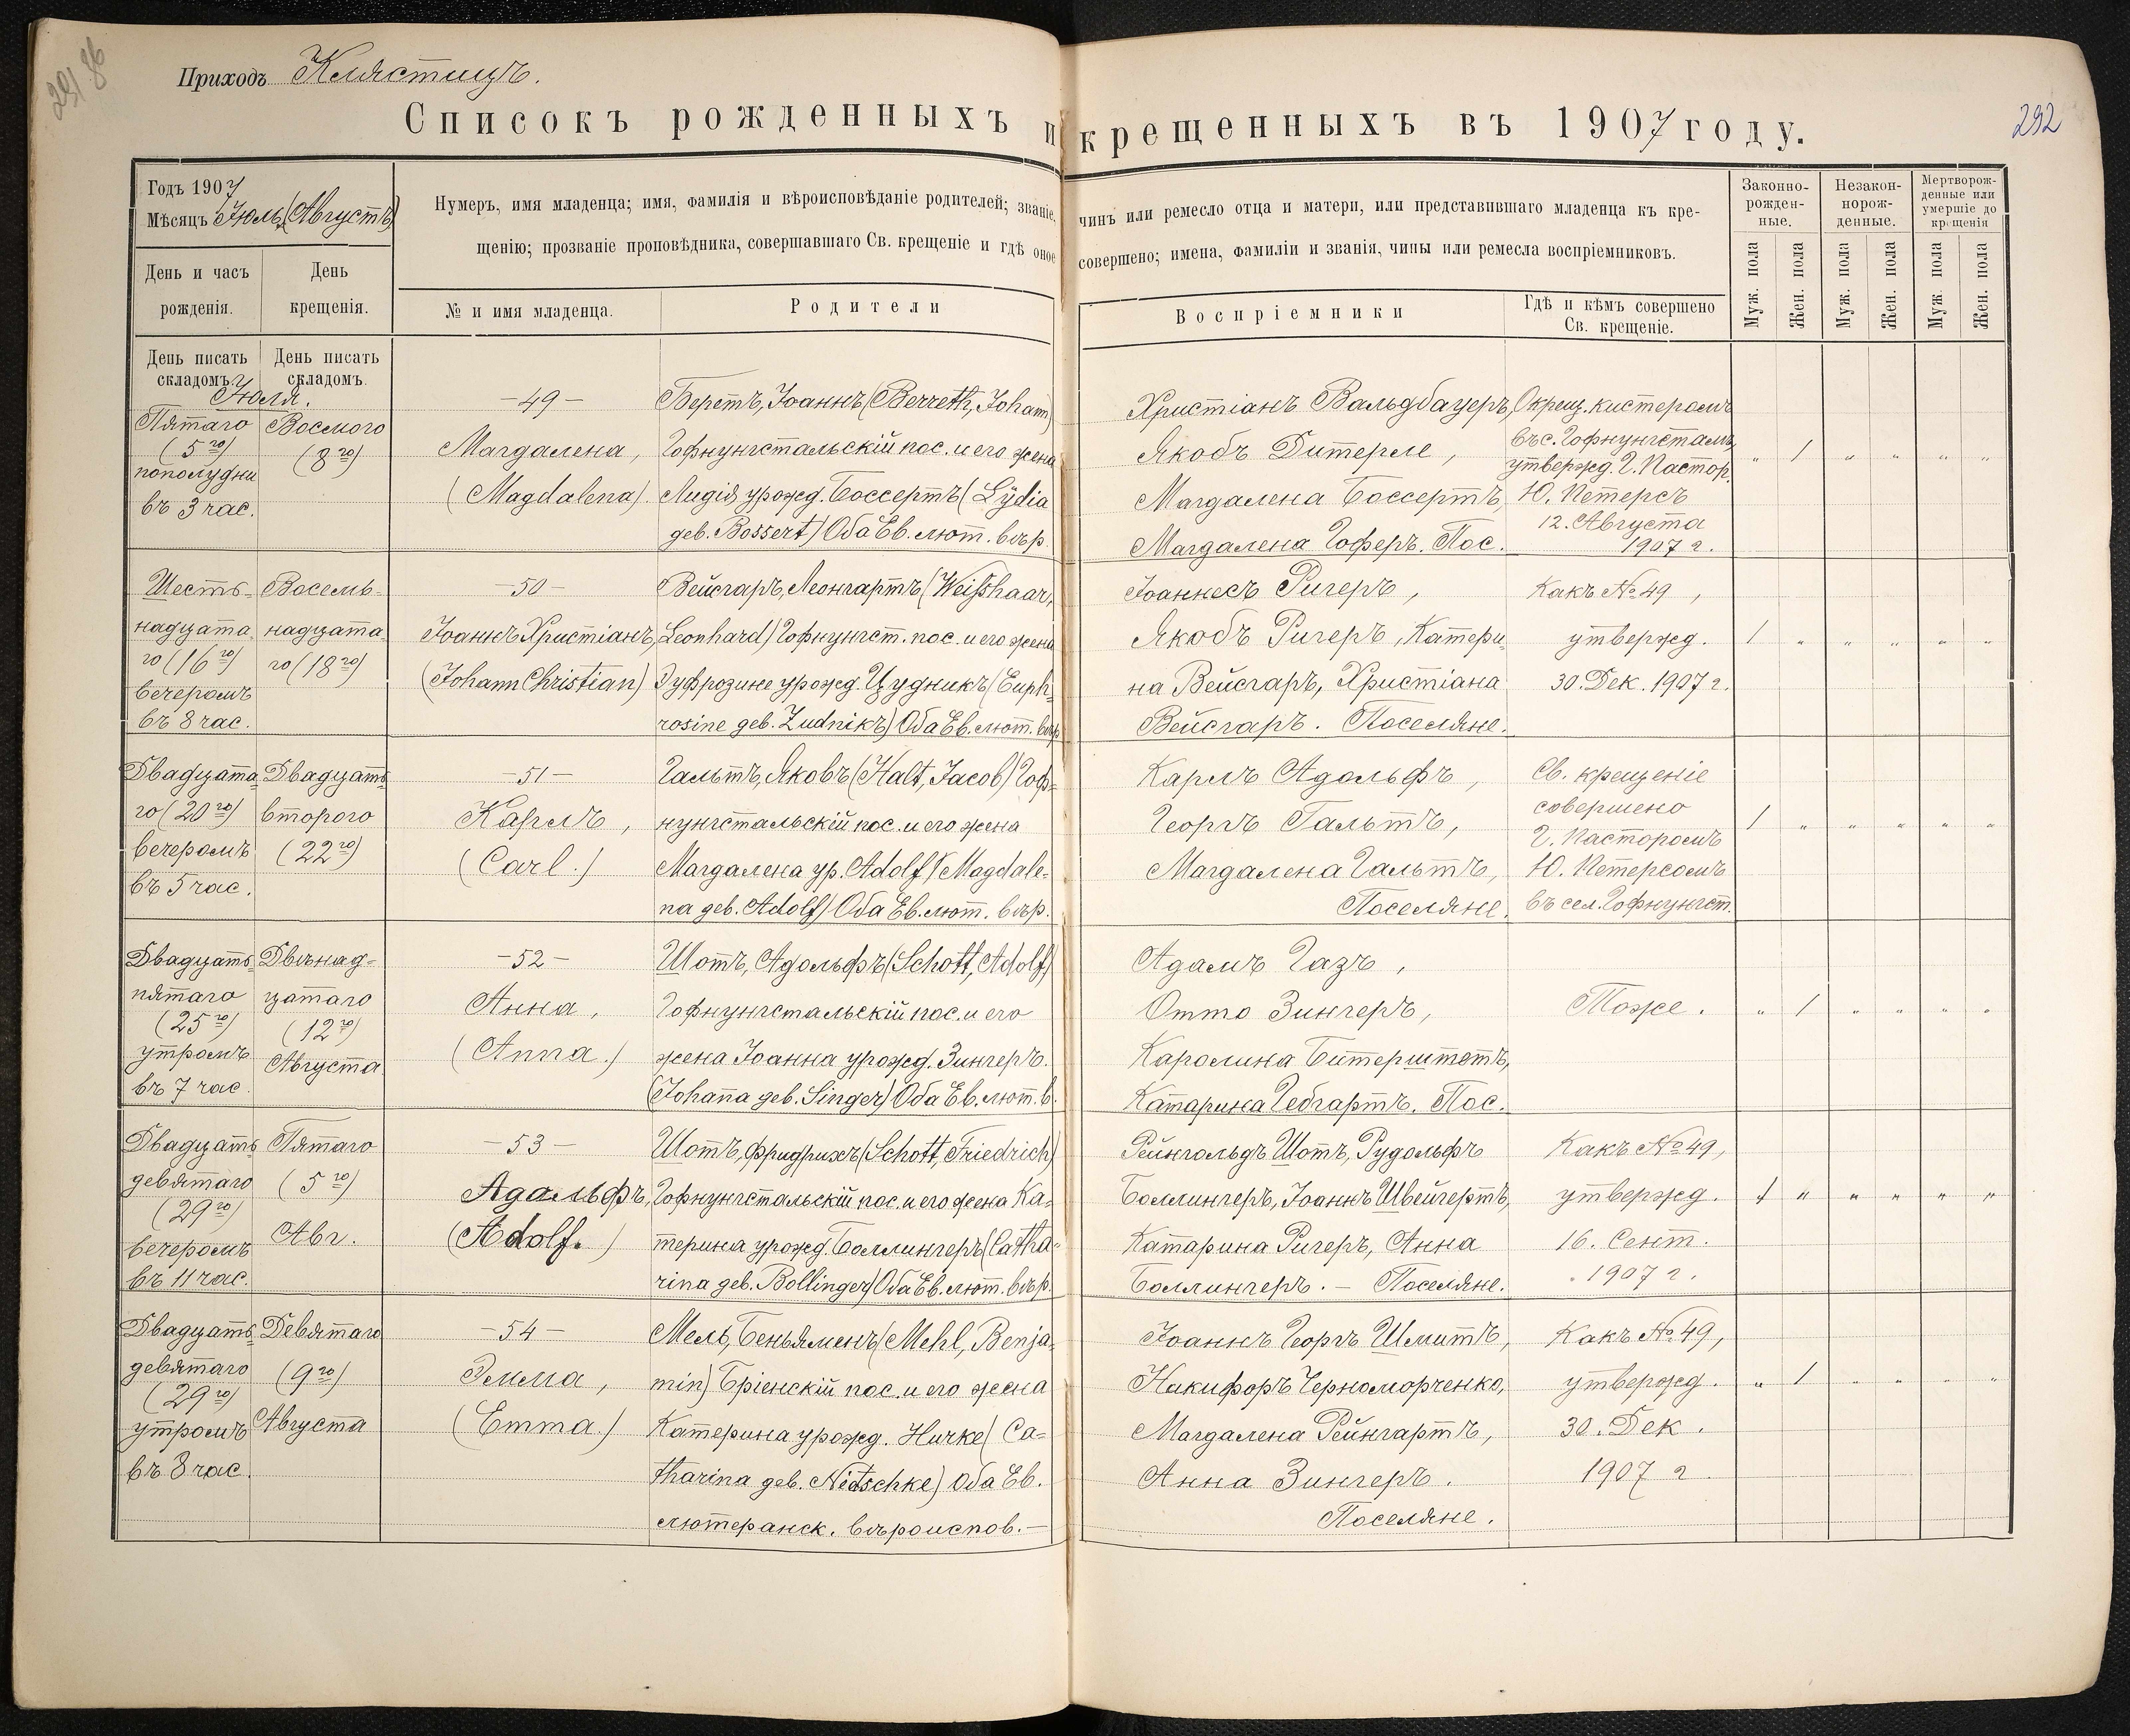 291 86
Приходъ Клястицъ.
Списокъ рожденныхъ и крещенныхъ въ 1907 году.
292
Годъ 1907
Мѣсяцъ Июль (Августъ)
День и часъ рожденія.
День крещенія.
Нумеръ, имя младенца; имя, фамилія и вѣроисповѣданіе родителей; званіе, чинъ или ремесло отца и матери, или представившаго младенца къ кре-
щенію; прозваніе проповѣдника, совершавшаго Св. крещеніе и гдѣ оное совершено; имена, фамиліи и званія, чины или ремесла воспріемниковъ.
№ и имя младенца.
Родители
Воспріемники
Гдѣ и кѣмъ совершено Св. крещеніе.
Законно-
рожден-
ные.
Незакон-
норож-
денные.
Мертворож-
денные или
умершіе до
крещенія
Муж. пола
Жен. пола
Муж. пола
Жен. пола
Муж. пола
Жен. пола
День писать складомъ.
День писать складомъ.
Июля.
Пятаго
(5го)
пополудни
въ 3 час.
Восмого
(8го)
-49-
Магдалена,
(Magdalena).
Беретъ, Іоаннъ (Berreth, Johann)
Гофнунгстальскій пос. и его жена
Лидія урожд. Боссертъ (Lydia
geb. Bossert) Оба Ев. лют. вѣр.
Христіанъ Вальдбауеръ,
Якобъ Дитерле,
Магдалена Боссертъ,
Магдалена Гоферъ. Пос.
Окрещ. кистеромъ
въ с. Гофнунгсталь,
утвержд. Г. Пастор.
Ю. Петерсъ
12. Августа
1907 г.
„ 1 „ „ „ „
Шесть-
надцата
го (16го)
вечеромъ
въ 8 час.
Восемь-
надцата
го (18го)
-50-
Іоаннъ Христіанъ,
(Johann Christian)
Вейсгаръ, Леонгартъ (Weisshaar,
Leonhard) Гофнунгст. пос. и его жена
Эуфрозине урожд. Цудникъ (Euph-
rosine geb. Zudnikъ) Оба Ев. лют. вѣр
Іоаннесъ Ригеръ,
Якобъ Ригеръ, Катери-
на Вейсгаръ, Христіана
Вейсгаръ. Поселяне.
Какъ № 49,
утвержд.
30. Дек. 1907 г.
1 „ „ „ „ „
Двадцата
го (20го)
вечеромъ
въ 5 час.
Двадцать
второго
(22го)
-51-
Карлъ,
(Carl.)
Гальтъ, Яковъ (Halt, Jacob) Гоф-
нунгстальскій пос. и его жена
Магдалена ур. Adolf (Magdale-
na geb. Adolf) Оба Ев. лют. вѣр.
Карлъ Адольфъ,
Георгъ Гальтъ,
Магдалена Гальтъ,
Поселяне.
Св. крещеніе
совершено
Г. Пасторомъ
Ю. Петерсомъ
въ сел. Гофнунгст.
1 „ „ „ „ „
Двадцать
пятаго
(25го)
утромъ
въ 7 час.
Двѣнад-
цатаго
(12го)
Августа
-52-
Анна,
(Anna.)
Шотъ, Адольфъ (Schott, Adolf)
Гофнунгстальскій пос. и его
жена Іоанна урожд. Зингеръ.
(Johanna geb. Singer) Оба Ев. лют. в.
Адамъ Газъ,
Отто Зингеръ,
Каролина Битерштетъ,
Катарина Гебгартъ. Пос.
Тоже.
„ 1 „ „ „ „
Двадцать
девятаго
(29го)
вечеромъ
въ 11 час.
Пятаго
(5го)
Авг.
-53-
Адольфъ,
(Adolf.)
Шотъ, Фридрихъ (Schott, Friedrich)
Гофнунгстальскій пос. и его жена Ка-
терина урожд. Боллингеръ (Catha-
rina geb. Bollinger) Оба Ев. лют. вѣр.
Рейнгольдъ Шотъ, Рудольфъ
Боллингеръ, Іоаннъ Швейгертъ,
Катарина Ригеръ, Анна
Боллингеръ. - Поселяне.
Какъ № 49,
утвержд.
16. Сент.
1907 г.
1 „ „ „ „ „
Двадцать
девятаго
(29го)
утромъ
въ 8 час.
Девятаго
(9го)
Августа
-54-
Эмма,
(Emma.)
Мель, Беньяменъ (Mehl, Benja-
min) Бріенскій пос. и его жена
Катерина урожд. Ничке (Ca-
tharina geb. Nitschke) Оба Ев.
лютеранск. вѣроиспов. -
Іоаннъ Георгъ Шмитъ,
Никифоръ Черноморченко,
Магдалена Рейнгартъ,
Анна Зингеръ.
Поселяне.
Какъ № 49,
утвержд.
30. Дек.
1907 г.
„ 1 „ „ „ „